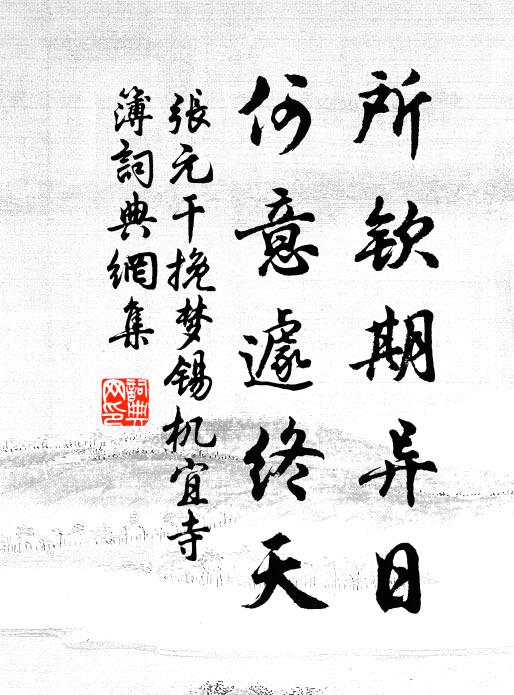 所钦期异日
何意遽终天
張元干挽梦锡机宜寺
簿詞典網集
詞典
网印